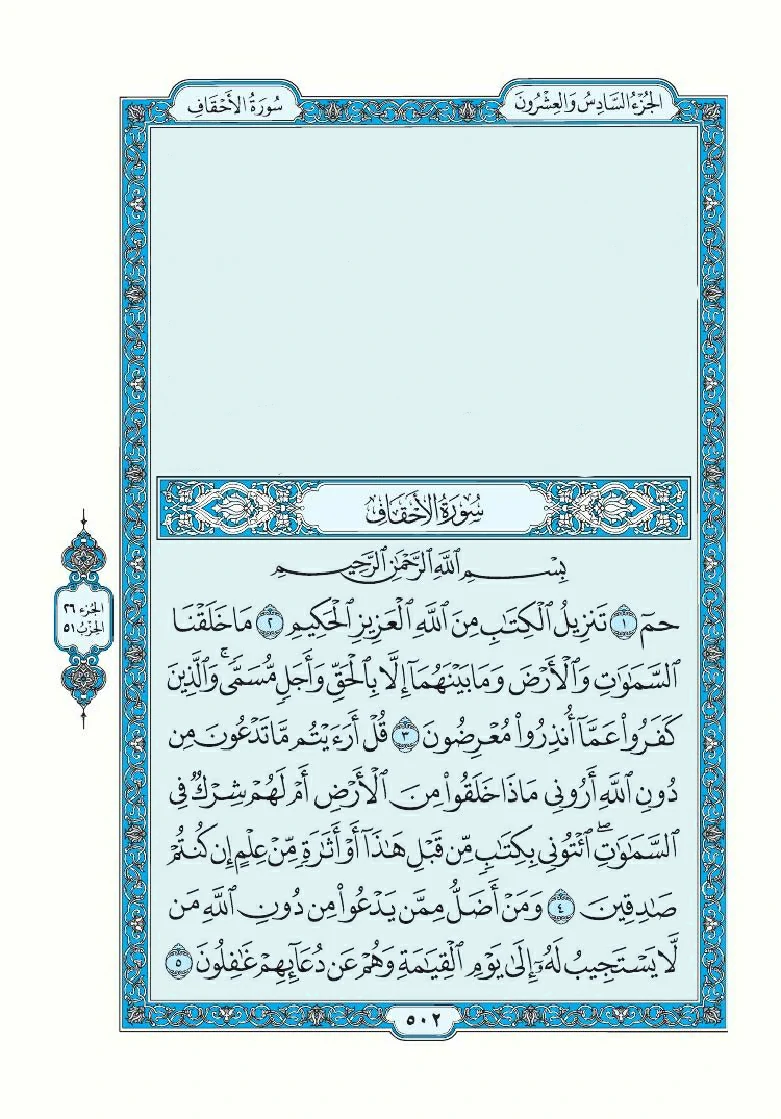 الجُزْءُ السَّادِسُ وَالعِشْرُونَ
سُورَةُ الأَحْقَافِ
سُورَةُ الأَحْقَافِ
بِسْمِ اللَّهِ الرَّحْمَٰنِ الرَّحِيمِ
حمٓ ١ تَنزِيلُ ٱلْكِتَٰبِ مِنَ ٱللَّهِ ٱلْعَزِيزِ ٱلْحَكِيمِ ٢ مَا خَلَقْنَا
ٱلسَّمَٰوَٰتِ وَٱلْأَرْضَ وَمَا بَيْنَهُمَآ إِلَّا بِٱلْحَقِّ وَأَجَلٍ مُّسَمًّى ۚ وَٱلَّذِينَ
كَفَرُوا۟ عَمَّآ أُنذِرُوا۟ مُعْرِضُونَ ٣ قُلْ أَرَءَيْتُم مَّا تَدْعُونَ مِن
دُونِ ٱللَّهِ أَرُونِى مَاذَا خَلَقُوا۟ مِنَ ٱلْأَرْضِ أَمْ لَهُمْ شِرْكٌ فِى
ٱلسَّمَٰوَٰتِ ۖ ٱئْتُونِى بِكِتَٰبٍ مِّن قَبْلِ هَٰذَآ أَوْ أَثَٰرَةٍ مِّنْ عِلْمٍ إِن كُنتُمْ
صَٰدِقِينَ ٤ وَمَنْ أَضَلُّ مِمَّن يَدْعُوا۟ مِن دُونِ ٱللَّهِ مَن
لَّا يَسْتَجِيبُ لَهُۥٓ إِلَىٰ يَوْمِ ٱلْقِيَٰمَةِ وَهُمْ عَن دُعَآئِهِمْ غَٰفِلُونَ ٥
الجُزء ٢٦
الحِزْبُ ٥١
٥٠٢